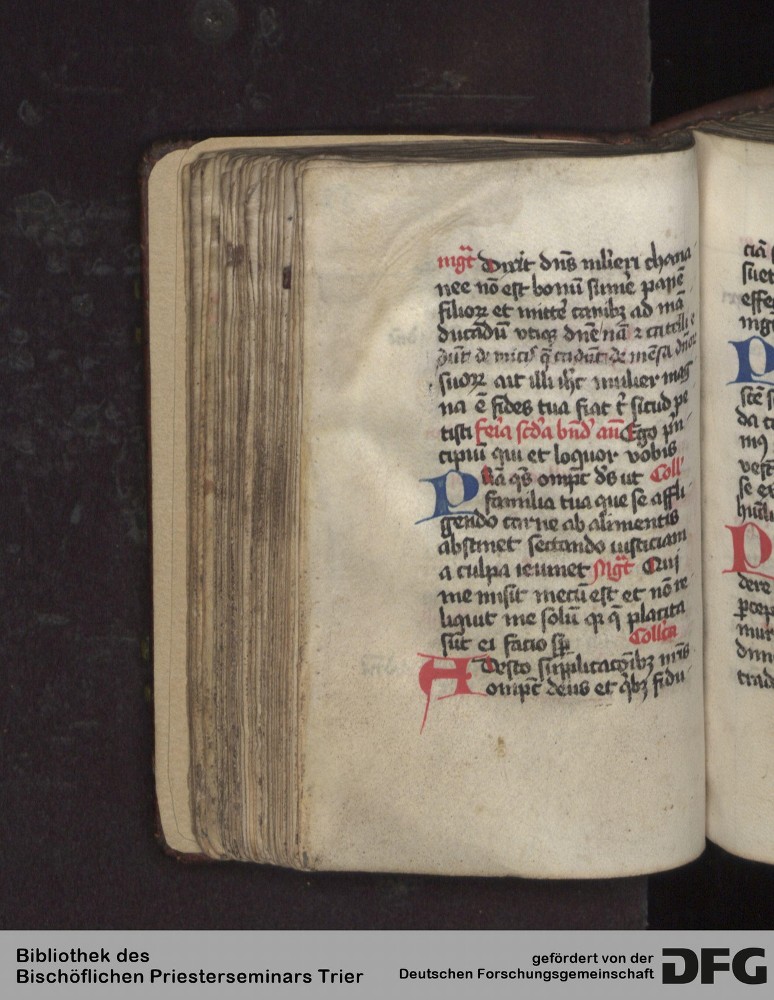 mgt̃ Dixit dñs mlieri chana
nee nõ est bonũ sumẽ panẽ
filiorꝝ et mittẽ canibꝫ ad mã
ducãdũ vtiqꝫ dñe nã ⁊ catelli e
dũt de micis q̃ cadũt de mẽsa dñorꝝ
suorꝝ ait illi ihc̃ mulier mag
na ẽ fides tua fiat t̃ sicud pe
tisti feria scd̃a bñd añ Ego pñ
cipiũ qui et loquor vobis
Pr̃ia q̃s omp̃t ds̃ ut Coll̃
familia tua que se affli
gendo carne ab alimentis
abstinet sectando iusticiam
a culpa ieiunet Mgt̃ Qui
me misit mecũ est et nõ re
liquit me solũ qꝛ q̃ placita
sũt ei facio sp̃ Collc̃a
Adesto supplicatõibꝫ nr̃is
omp̃t deus et qͥbꝫ fidu
ciã
suet
effe
mgt
P
stẽ s
da
mꝯ
vest
se ex
hũil
P
dere
ꝑcep
mur
dnm
trade
Bibliothek des
Bischöflichen Priesterseminars Trier
gefördert von der
Deutschen Forschungsgemeinschaft
DFG